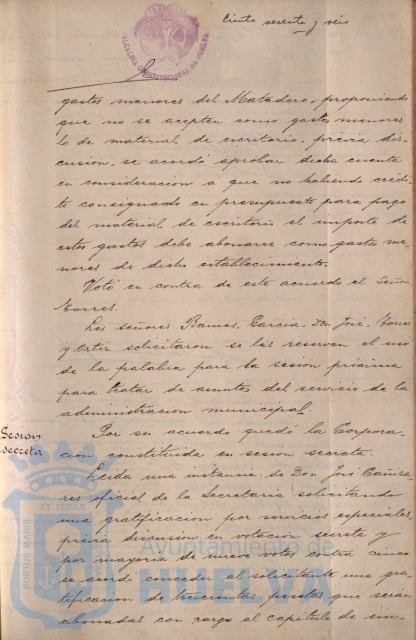 Ciento sesenta y seis
ALCALDIA CONSTITUCIONAL DE HUELVA
gastos menores del Matadero, proponiendo
que no se acepten como gastos menores
lo de material de escritorio, previa dis-
cusion, se acordó aprobar dicha cuenta
en consideracion a que no habiendo crédi-
to consignado en presupuesto para pago
del material de escritorio el importe de
estos gastos debe abonarse como gastos me-
nores de dicho establecimiento.
Votó en contra de este acuerdo el Señor
Torres.
Los señores Ramos, Garcia, Don José, Torres
y Ortiz solicitaron se les reserven el uso
de la palabra para la sesion próxima
para tratar de asuntos del servicio de la
administracion municipal.
Sesion
secreta
Por su acuerdo quedó la Corpora-
cion constituida en sesion secreta.
Leida una instancia de Don José Cañiza-
res oficial de la Secretaria solicitando
una gratificacion por servicios especiales,
previa discusion en votacion secreta y
por mayoria de nueve votos contra cinco
se acordó conceder al solicitante una gra-
tificacion de trescientas pesetas que serán
abonadas con cargo al capitulo de im-
PORTUS MARIS ET TERRAE
Ayuntamiento de
HUELVA